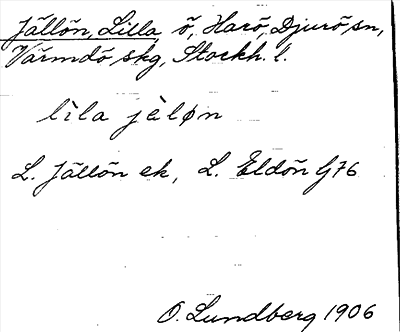 Jällön, Lilla, ö, Harö, Djurö sn,
Värmdö skg, Stockh. l.
lìla jèløn
L. Jällön ek, L. Eldön G76
O. Lundberg 1906